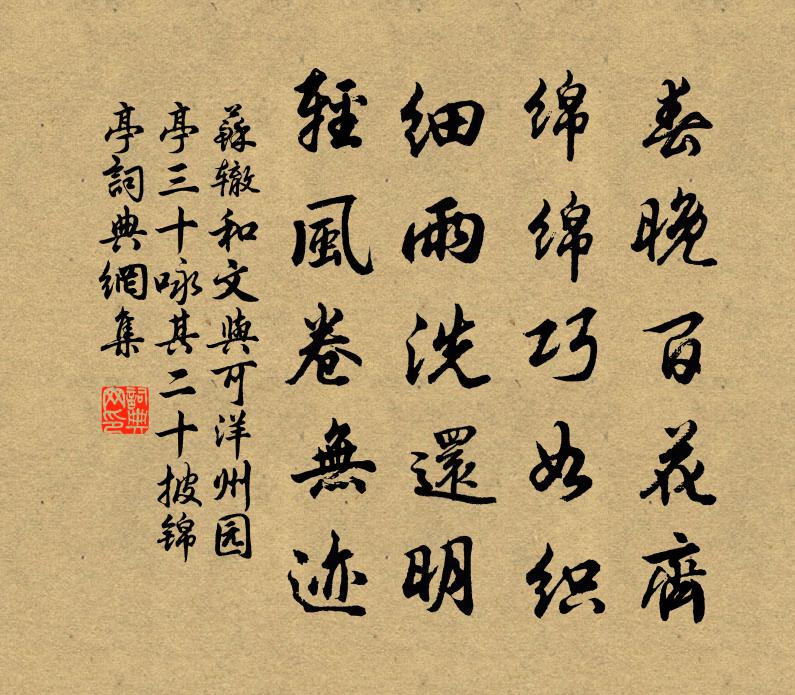 春晚百花齊
綿綿巧如织
细雨洗還明
輕風卷無迹
蘇辙和文與可洋州园
亭三十咏其二十披锦
亭詞典網集
詞典网印